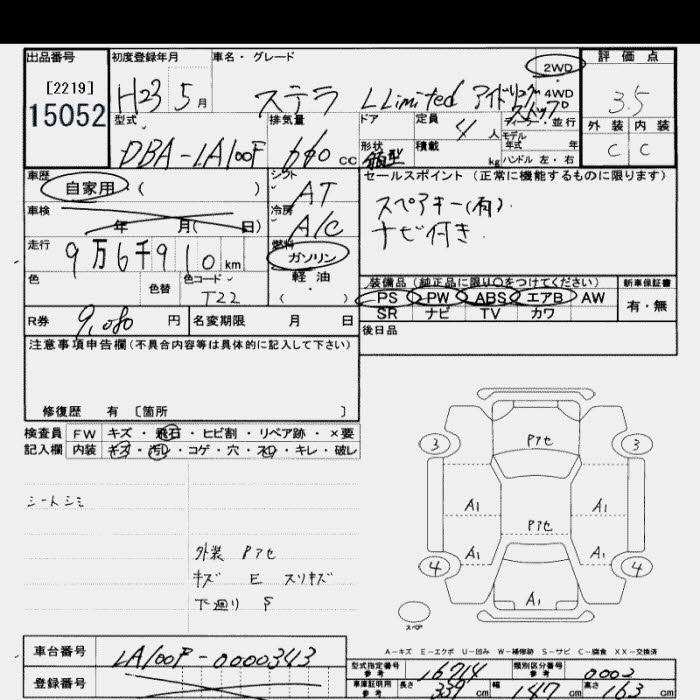 出品番号 初度登録年月 車名・グレード 評価点
[2219]
15052
H23 5月 ステラ L Limited アイドリングストップ 2WD 4WD 3.5
ディーラー・並行
外装 内装
C C
型式 排気量 ドア 定員 4人 モデル年式 年
DBA-LA100F 660cc 形状 箱型 積載 kg ハンドル 左・右
車歴 自家用・( ) シフト AT セールスポイント (正常に機能するものに限ります)
車検 年 月( 日) 冷房 A/C スペアキー(有).
ナビ付き
走行 9万6千910km 燃料 ガソリン
軽油
( )
色 色替 色コード T22 装備品 (純正品に限り○をつけてください) 新車保証書
PS PW ABS エアB AW 有・無
SR ナビ TV カワ
R券 9,080円 名変期限 月 日 後日品
注意事項申告欄(不具合内容等は具体的に記入して下さい)
修復歴 有 〔箇所 〕
検査員 FW キズ・飛石・ヒビ割・リペア跡・×要
記入欄 内装 キズ・汚レ・コゲ・穴・スレ・キレ・破レ
シートシミ
外装 Pアセ
キズ E スリキズ
下廻り S
3 Pアセ 3
A1 A1
Pアセ
A1 A1
4 4
A1
スペア
A−キズ E−エクボ U−凹み W−補修跡 S−サビ C−腐食 XX−交換済
車台番号 LA100F-0000343
登録番号
型式指定番号 参考 16714 類別区分番号 参考 0003
車庫証明用 参考 長さ 339cm 幅 147cm 高さ 163cm